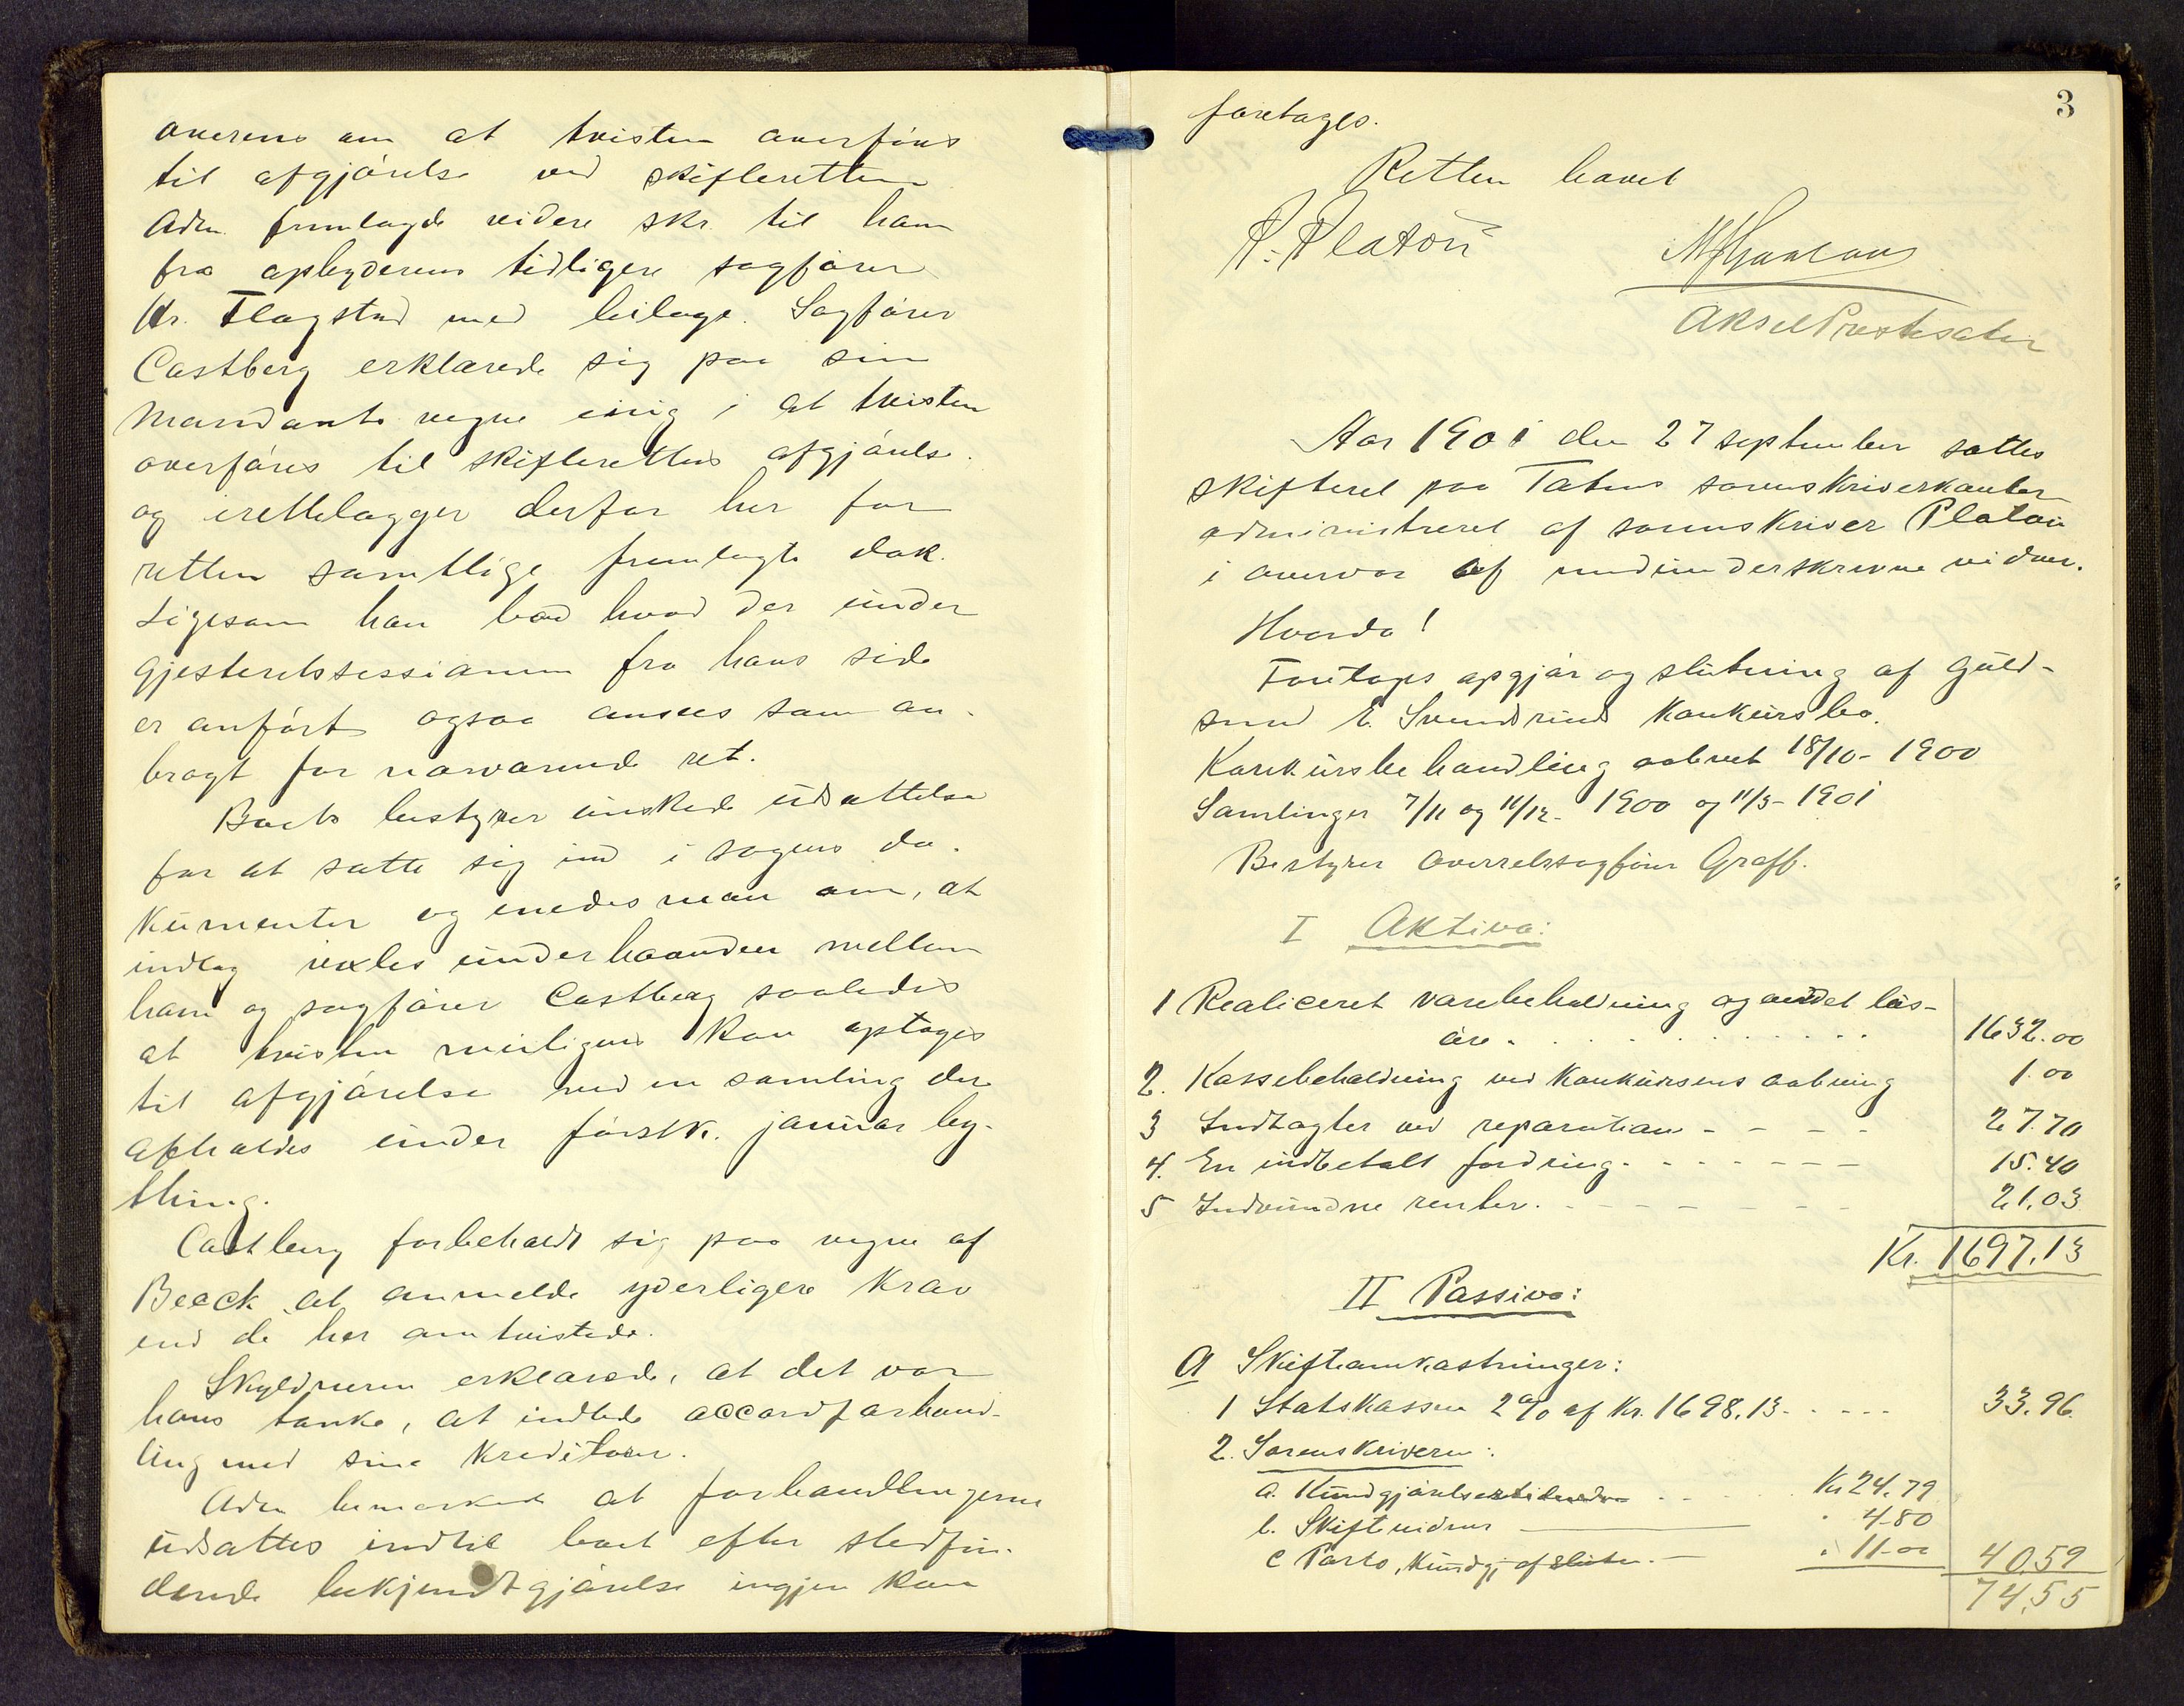 overens om at tvisten overføres
til afgjørelse ved skifteretten
Adm. fremlagde videre skr. til ham
fra opbyderens tidligere sagfører
Hr. Flagstad med bilage. Sagfører
Castberg erklærede sig paa sin
Mandants vegne enig i at tvisten
overføres til skifterettens afgjørelse.
og irettelægger derfor her for
retten samtlige fremlagte dok.
Ligesom han bad hvad der under
gjesteretssessionen fra hans side
er anført ogsaa ansees som an-
bragt for nærværende ret.
Boets bestyrer ønskede udsættelse
for at sætte sig ind i sagens do-
kumenter og enedes man om, at
indlæg vexles underhaanden mellem
ham og sagfører Castberg saaledes
at tvisten muligens kan optages
til afgjørelse ved en samling der
afholdes under førstk. januar by-
thing.
Castberg forbeholdt sig paa vegne af
Beeck at anmelde yderligere krav
end de her omtvistede.
Skyldneren erklærede, at det var
hans tanke, at indlede accordforhand-
ling med sine kreditorer.
Adm bemærkede at forhandlingerne
udsættes indtil boet efter stedfin-
dende bekjendtgjørelse ingjen kan
3
foretages.
Retten hævet
P. Platou
Aksel Prestesæter
Aar 1901 den 27 september sattes
skifteret paa Totens sorenskriverkontor
administreret af sorenskriver Platou
i overvær af medunderskrevne vidner.
Hvorda!
Foretoges opgjør og slutning af guld-
smed E. Svendsruds konkursbo.
Konkursbehandling aabnet 18/10 - 1900
Samlinger 7/11 og 11/12 - 1900 og 11/3 - 1901
Bestyrer Overretssagfører Graff.
I Aktiva:
1 Realiceret varebeholdning og andet løs-
øre . . . . . . . . . . 1632.00
2. Kassebeholdning ved konkursens aabning 1.00
3 Indtægter ved reparation - - - - 27.70
4. En indbetalt fordring - - - - - - - 15.40
5 Indvundne renter. - - - - - - - 21.03
Kr. 1697.13
II Passiva:
A Skifteomkostninger:
1 Statskassen 2% af Kr. 1698.13 - - - - - 33.96
2. Sorenskriveren:
a. Kundgjørelsestidende - - - Kr 24.79
b. Skiftevidner " 4.80
c Porto, Kundgj. af slutn. - " 11.00 40.59
74.55